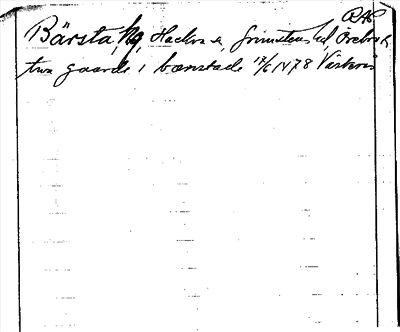 RAP
Bärsta, hg, Hackva s, Grimstens hd, Örebro l.
two gaarde i bærstade 12/6 1478 Västerås